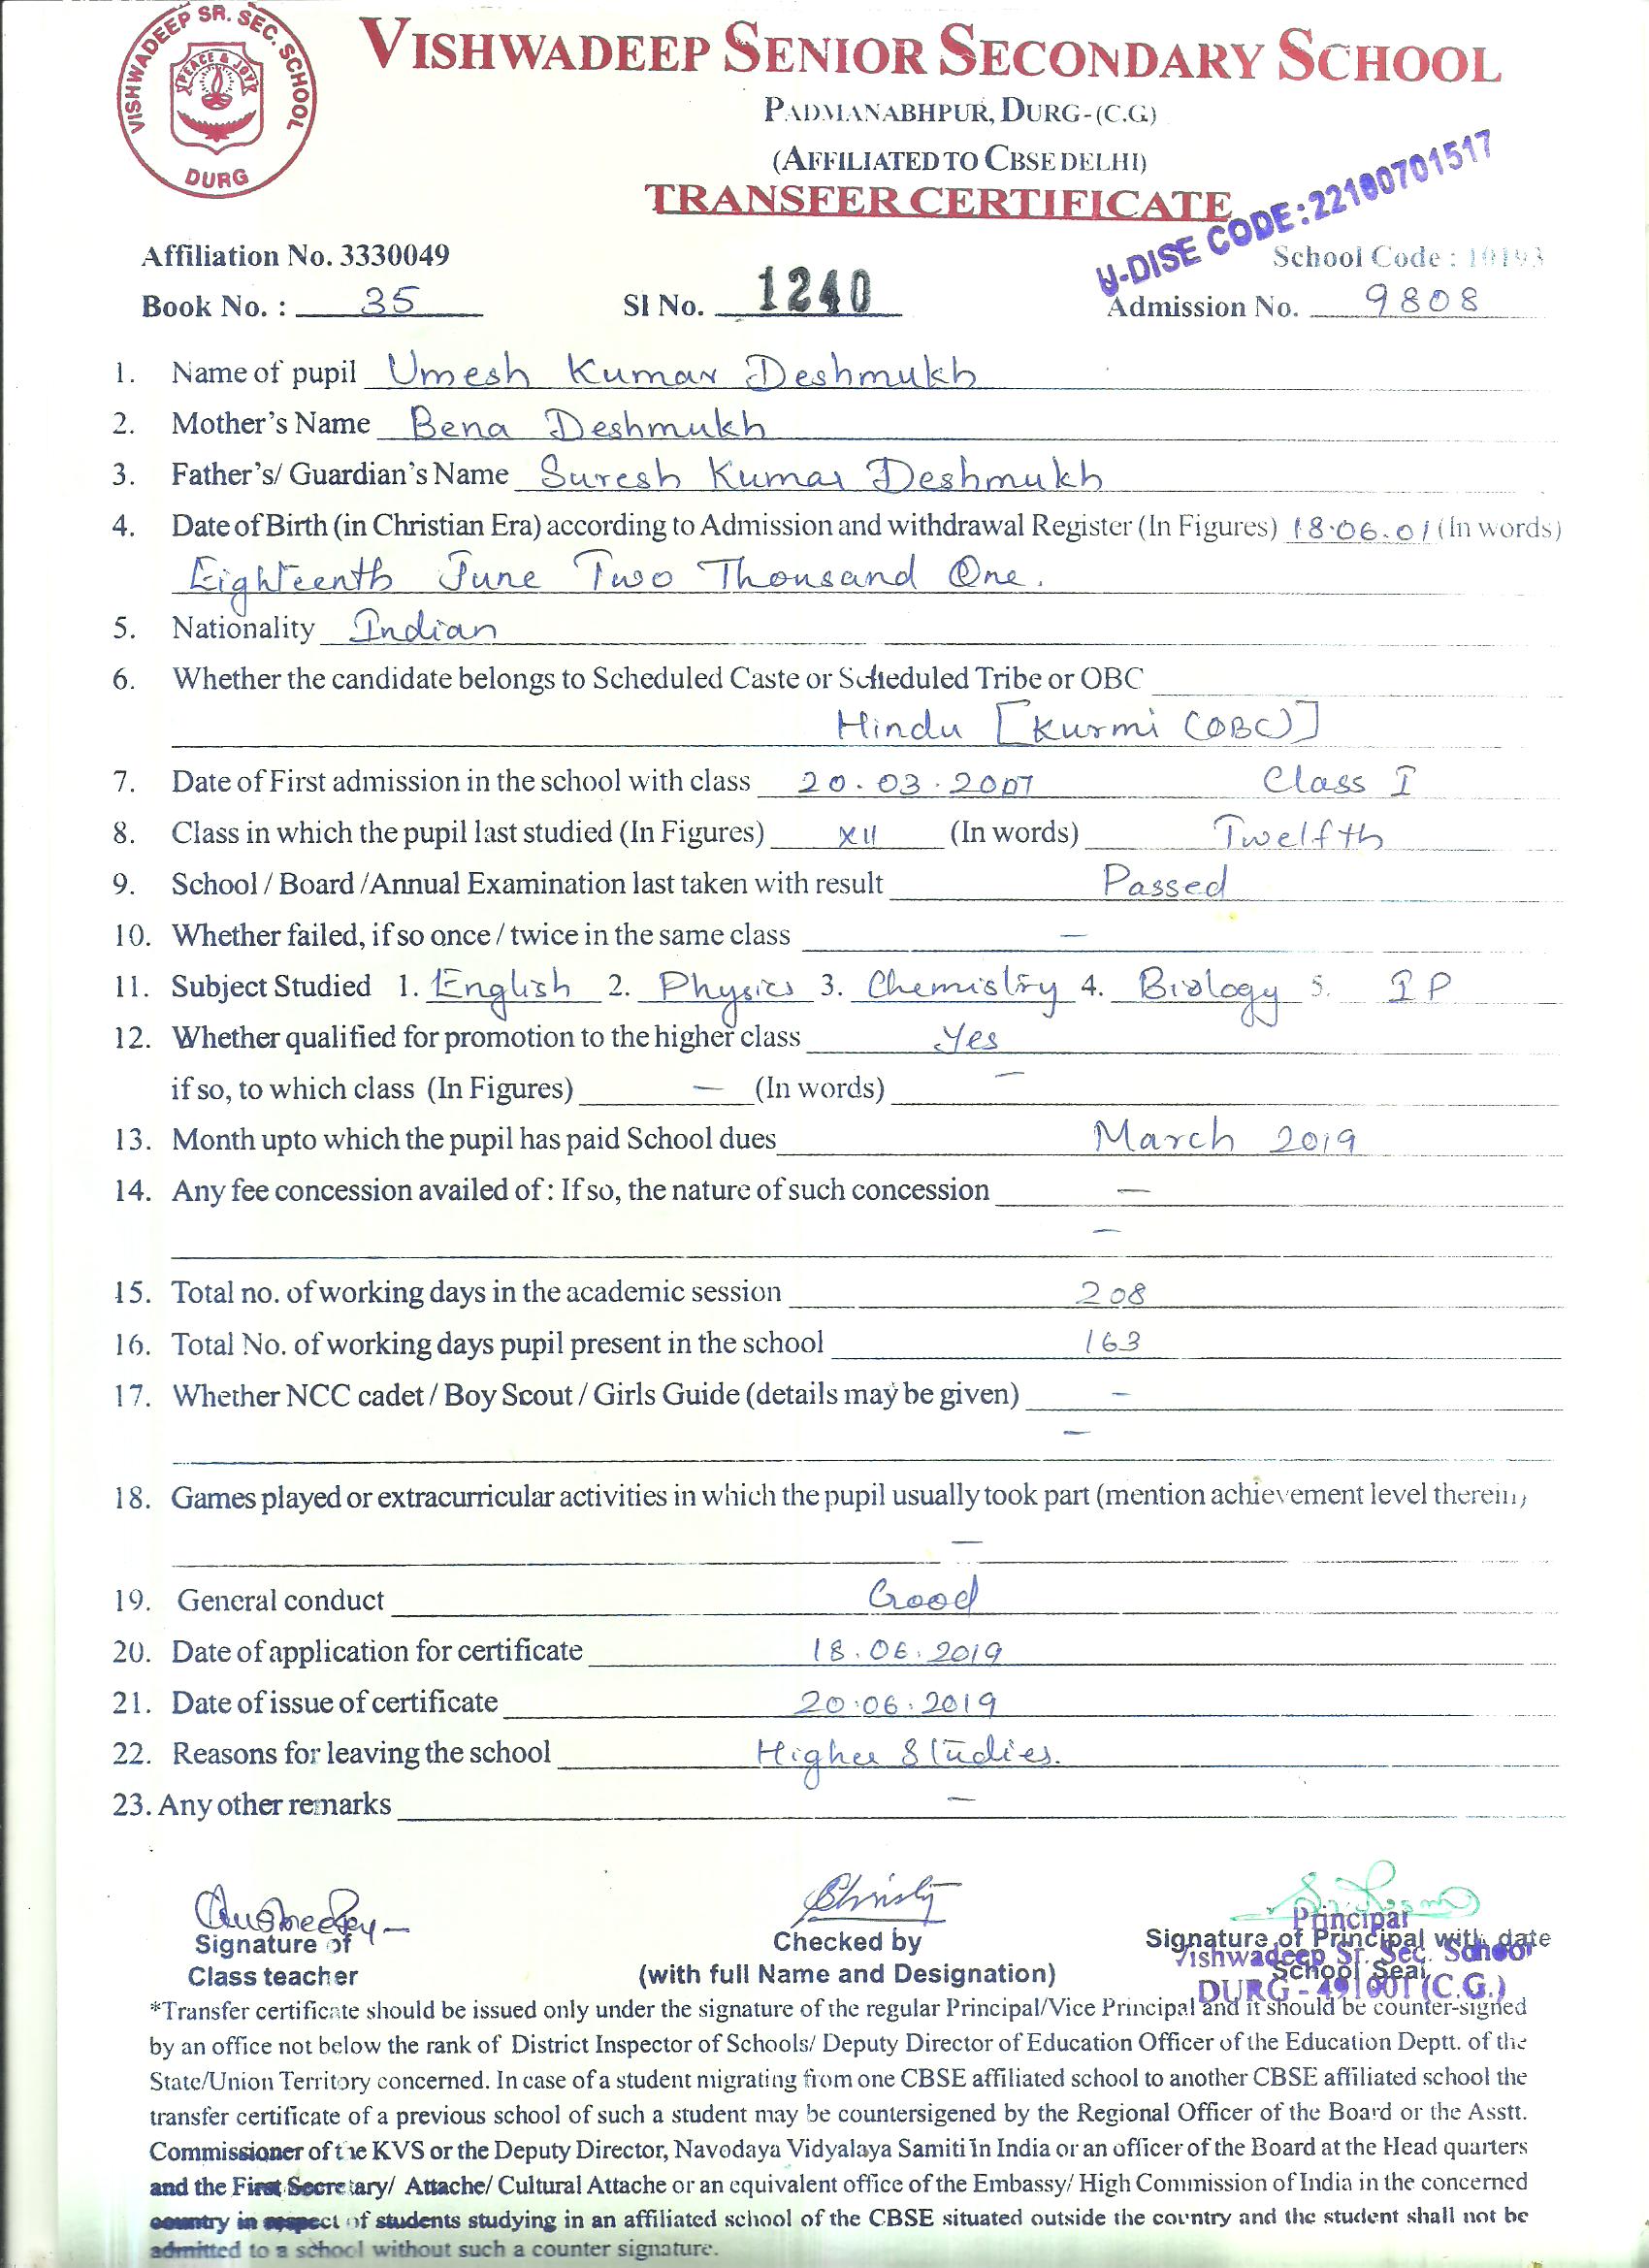 VISHWADEEP SR. SEC. SCHOOL
PEACE & JOY
DURG
VISHWADEEP SENIOR SECONDARY SCHOOL
PADMANABHPUR, DURG-(C.G.)
(AFFILIATED TO CBSE DELHI)
TRANSFER CERTIFICATE
U-DISE CODE: 22100701517
Affiliation No. 3330049 School Code : 10193
Book No. : 35 Sl No. 1240 Admission No. 9808
1. Name of pupil Umesh Kumar Deshmukh
2. Mother's Name Bena Deshmukh
3. Father's/ Guardian's Name Suresh Kumar Deshmukh
4. Date of Birth (in Christian Era) according to Admission and withdrawal Register (In Figures) 18.06.01 (In words)
Eighteenth June Two Thousand One.
5. Nationality Indian
6. Whether the candidate belongs to Scheduled Caste or Scheduled Tribe or OBC
Hindu [Kurmi (OBC)]
7. Date of First admission in the school with class 20.03.2007 Class I
8. Class in which the pupil last studied (In Figures) XII (In words) Twelfth
9. School / Board /Annual Examination last taken with result Passed
10. Whether failed, if so once / twice in the same class —
11. Subject Studied 1. English 2. Physics 3. Chemistry 4. Biology 5. IP
12. Whether qualified for promotion to the higher class Yes
if so, to which class (In Figures) — (In words) —
13. Month upto which the pupil has paid School dues March 2019
14. Any fee concession availed of : If so, the nature of such concession —
—
15. Total no. of working days in the academic session 208
16. Total No. of working days pupil present in the school 163
17. Whether NCC cadet / Boy Scout / Girls Guide (details may be given) —
—
18. Games played or extracurricular activities in which the pupil usually took part (mention achievement level therein)
—
19. General conduct Good
20. Date of application for certificate 18.06.2019
21. Date of issue of certificate 20.06.2019
22. Reasons for leaving the school Higher Studies.
23. Any other remarks —
Principal
Signature of Checked by Signature of Principal with date
Vishwadeep Sr. Sec. School
Class teacher (with full Name and Designation) School Seal
DURG - 491001 (C.G.)
*Transfer certificate should be issued only under the signature of the regular Principal/Vice Principal and it should be counter-signed
by an office not below the rank of District Inspector of Schools/ Deputy Director of Education Officer of the Education Deptt. of the
State/Union Territory concerned. In case of a student migrating from one CBSE affiliated school to another CBSE affiliated school the
transfer certificate of a previous school of such a student may be countersigened by the Regional Officer of the Board or the Asstt.
Commissioner of the KVS or the Deputy Director, Navodaya Vidyalaya Samiti in India or an officer of the Board at the Head quarters
and the First Secretary/ Attache/ Cultural Attache or an equivalent office of the Embassy/ High Commission of India in the concerned
country in respect of students studying in an affiliated school of the CBSE situated outside the country and the student shall not be
admitted to a school without such a counter signature.